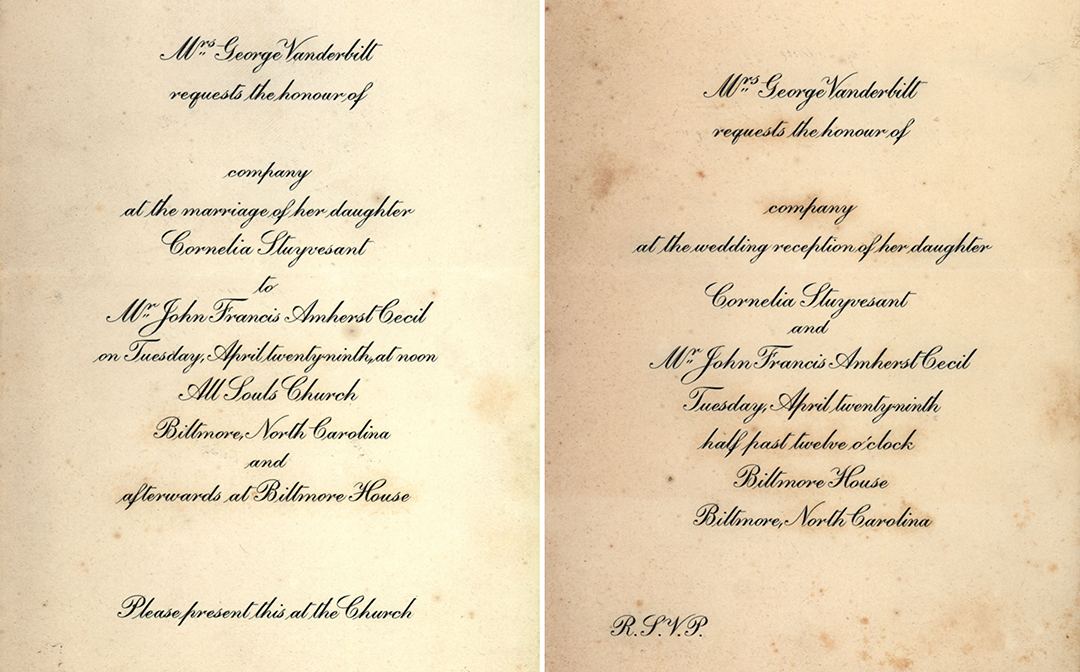 Mrs George Vanderbilt
requests the honour of
company
at the marriage of her daughter
Cornelia Stuyvesant
to
Mr John Francis Amherst Cecil
on Tuesday, April twenty-ninth, at noon
All Souls Church
Biltmore, North Carolina
and
afterwards at Biltmore House
Please present this at the Church
Mrs George Vanderbilt
requests the honour of
company
at the wedding reception of her daughter
Cornelia Stuyvesant
and
Mr John Francis Amherst Cecil
Tuesday, April twenty-ninth
half past twelve o'clock
Biltmore House
Biltmore, North Carolina
R.S.V.P.